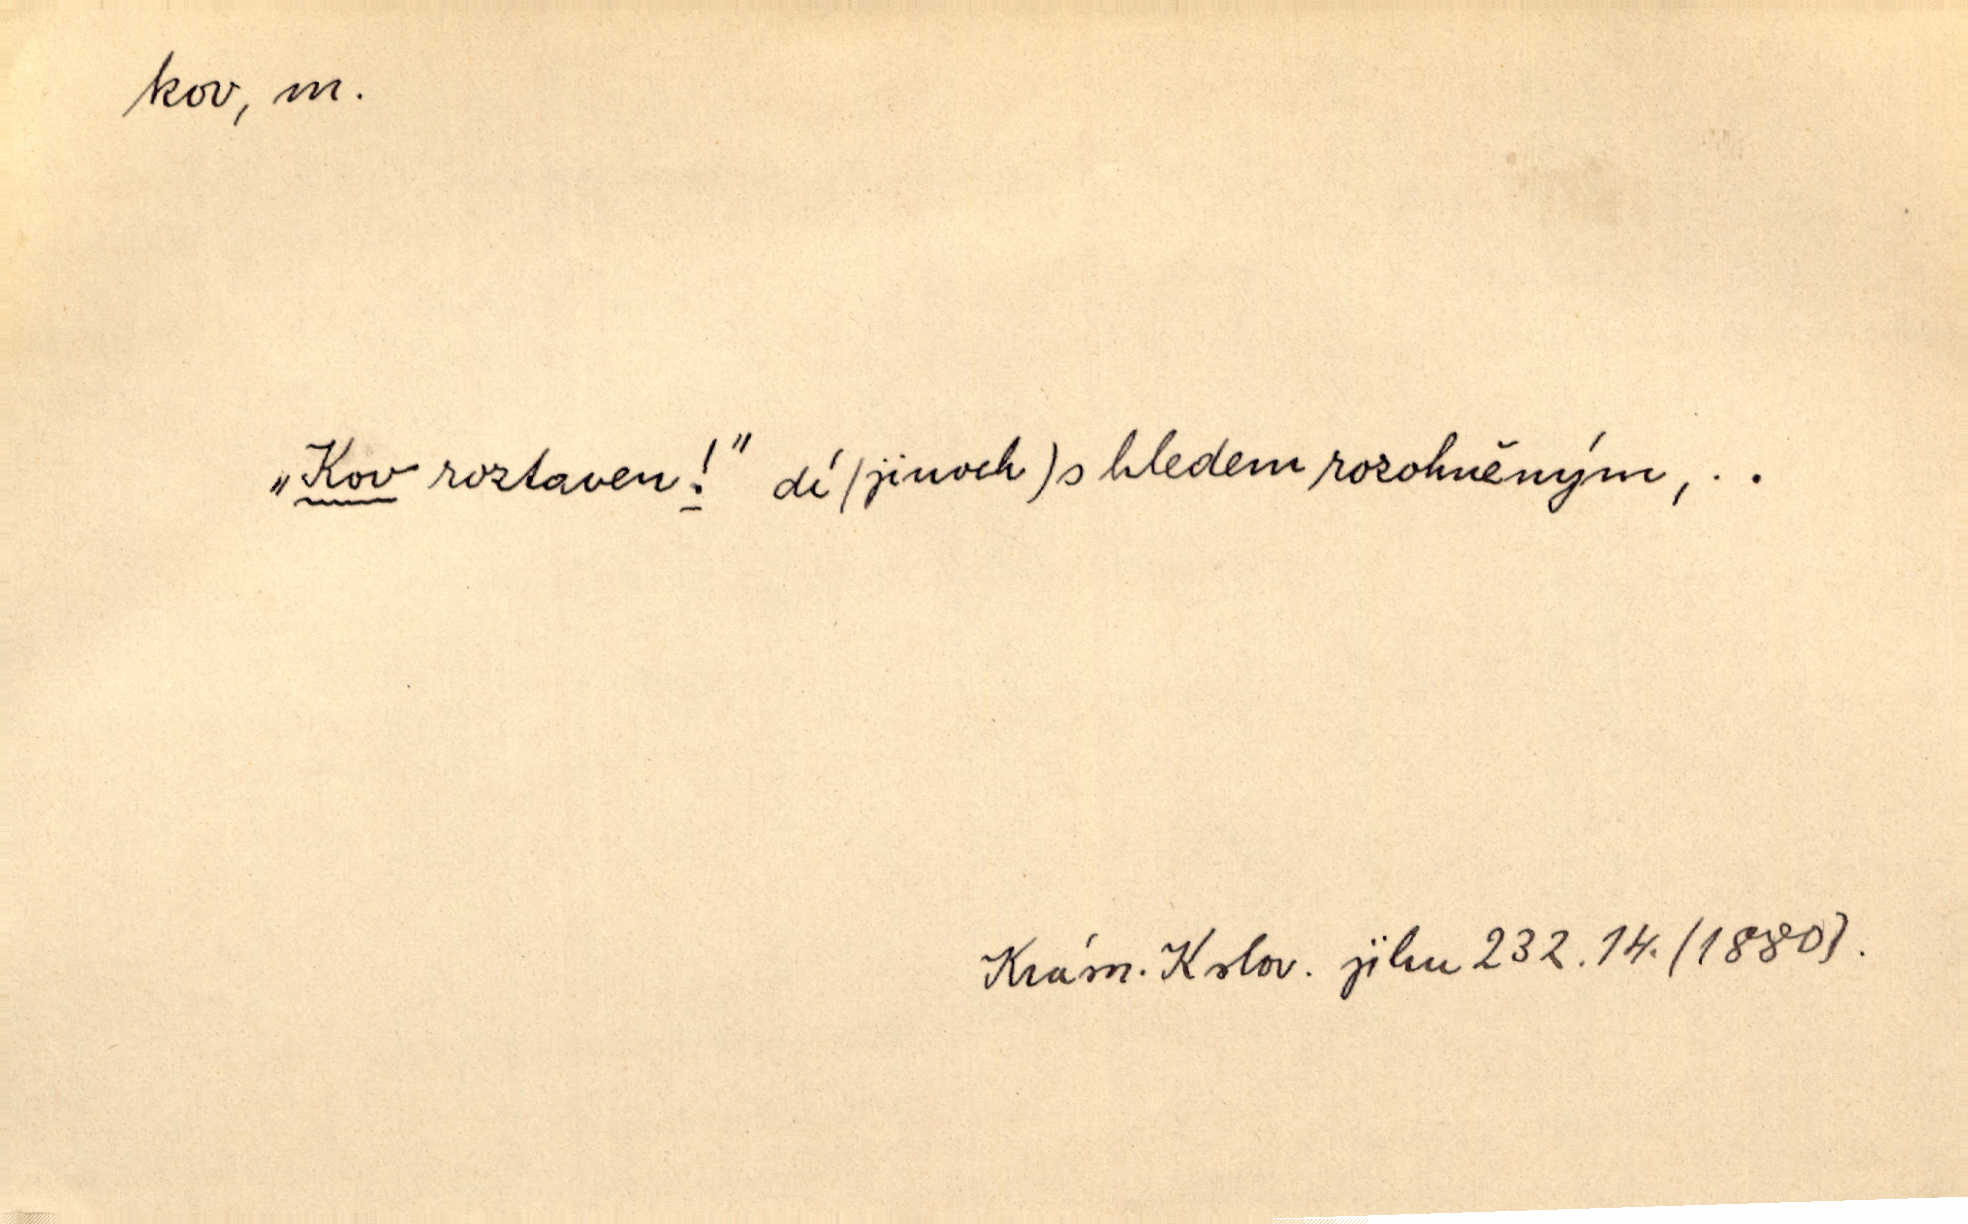 kov, m.
„Kov roztaven!" dí (jinoch) s hledem rozohněným, . .
Krásn. K slov. jihu 232. 14. (1880).